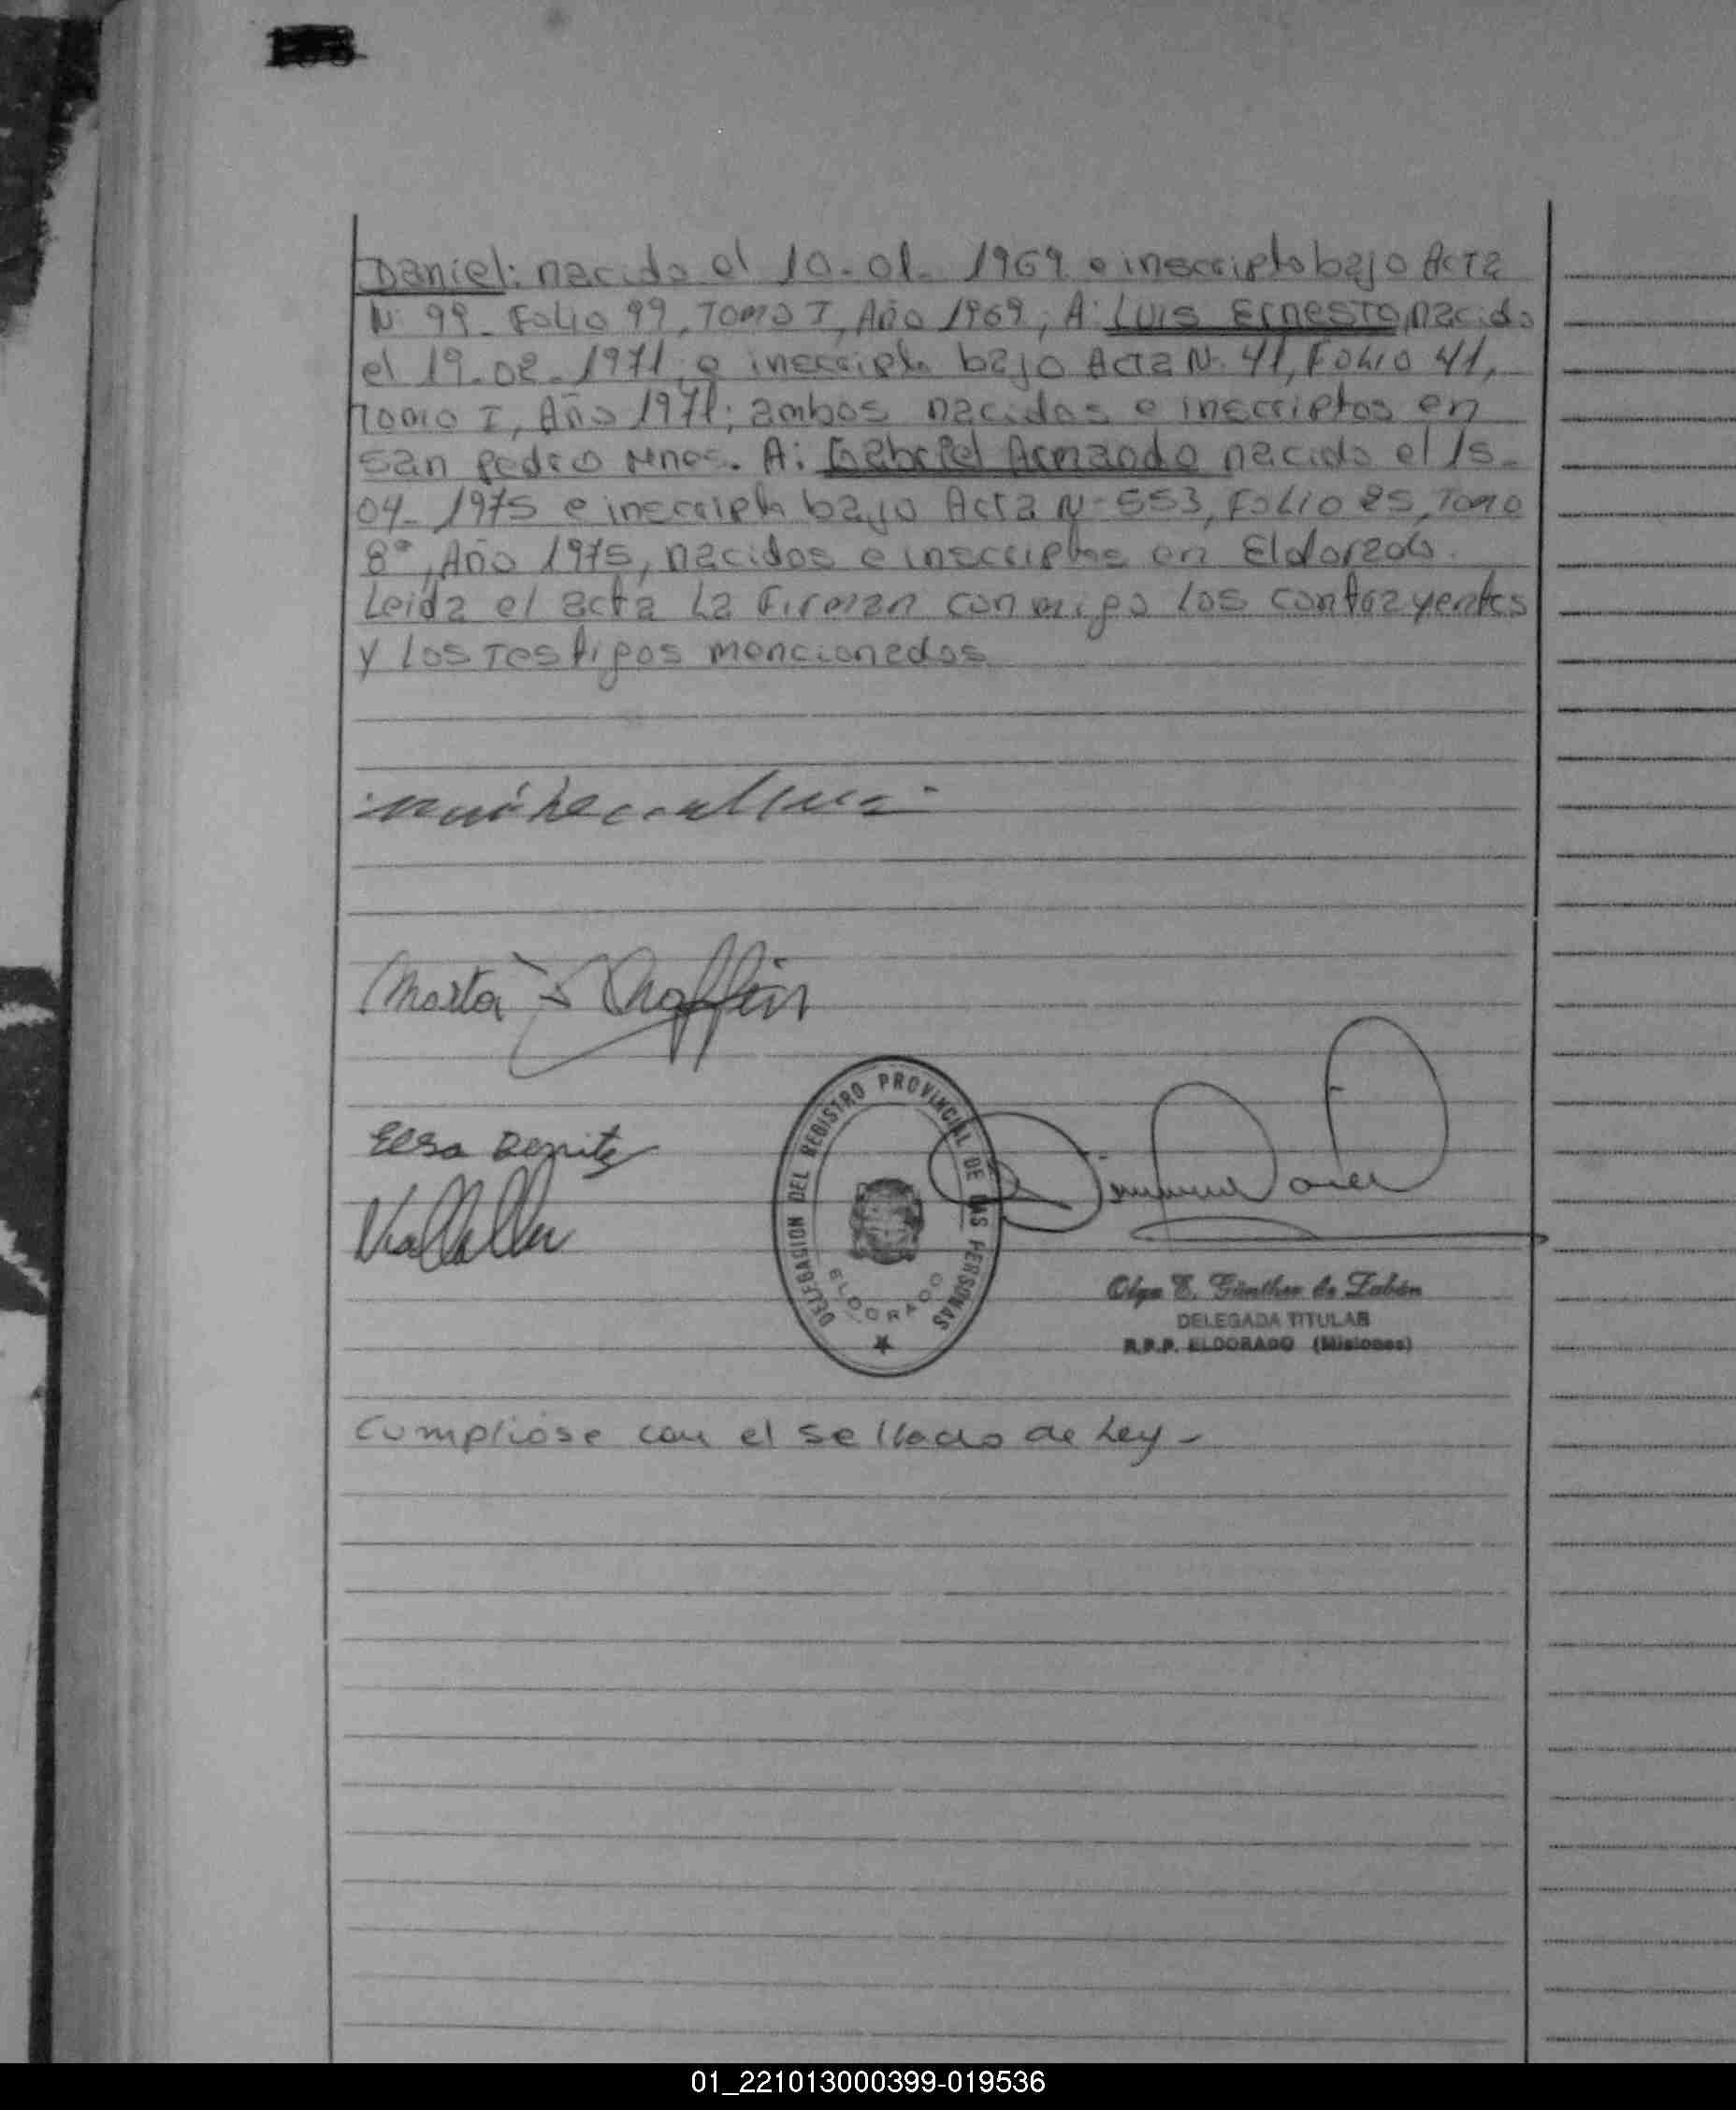 Daniel: nacido el 10-01-1969 e inscripto bajo Acta
N: 99- Folio 99, Tomo I, Año 1969; A: Luis Ernesto, nacido
el 19-02-1971, e inscripto bajo Acta N: 41, Folio 41,
Tomo I, Año 1971; ambos nacidos e inscriptos en
San Pedro Mnes. A: Gabriel Armando nacido el 15-
04-1975 e inscripto bajo Acta N-553, Folio 25, Tomo
8°, Año 1975, nacidos e inscriptos en Eldorado.
Leida el acta La Firman conmigo los contrayentes
y los Testigos mencionados
Marta
Elsa Benitez
DELEGACION DEL REGISTRO PROVINCIAL DE LAS PERSONAS
ELDORADO
Olga E. Günther de Zabán
DELEGADA TITULAR
R.P.P. ELDORADO (Misiones)
Cumplióse con el sellado de Ley-
01_221013000399-019536